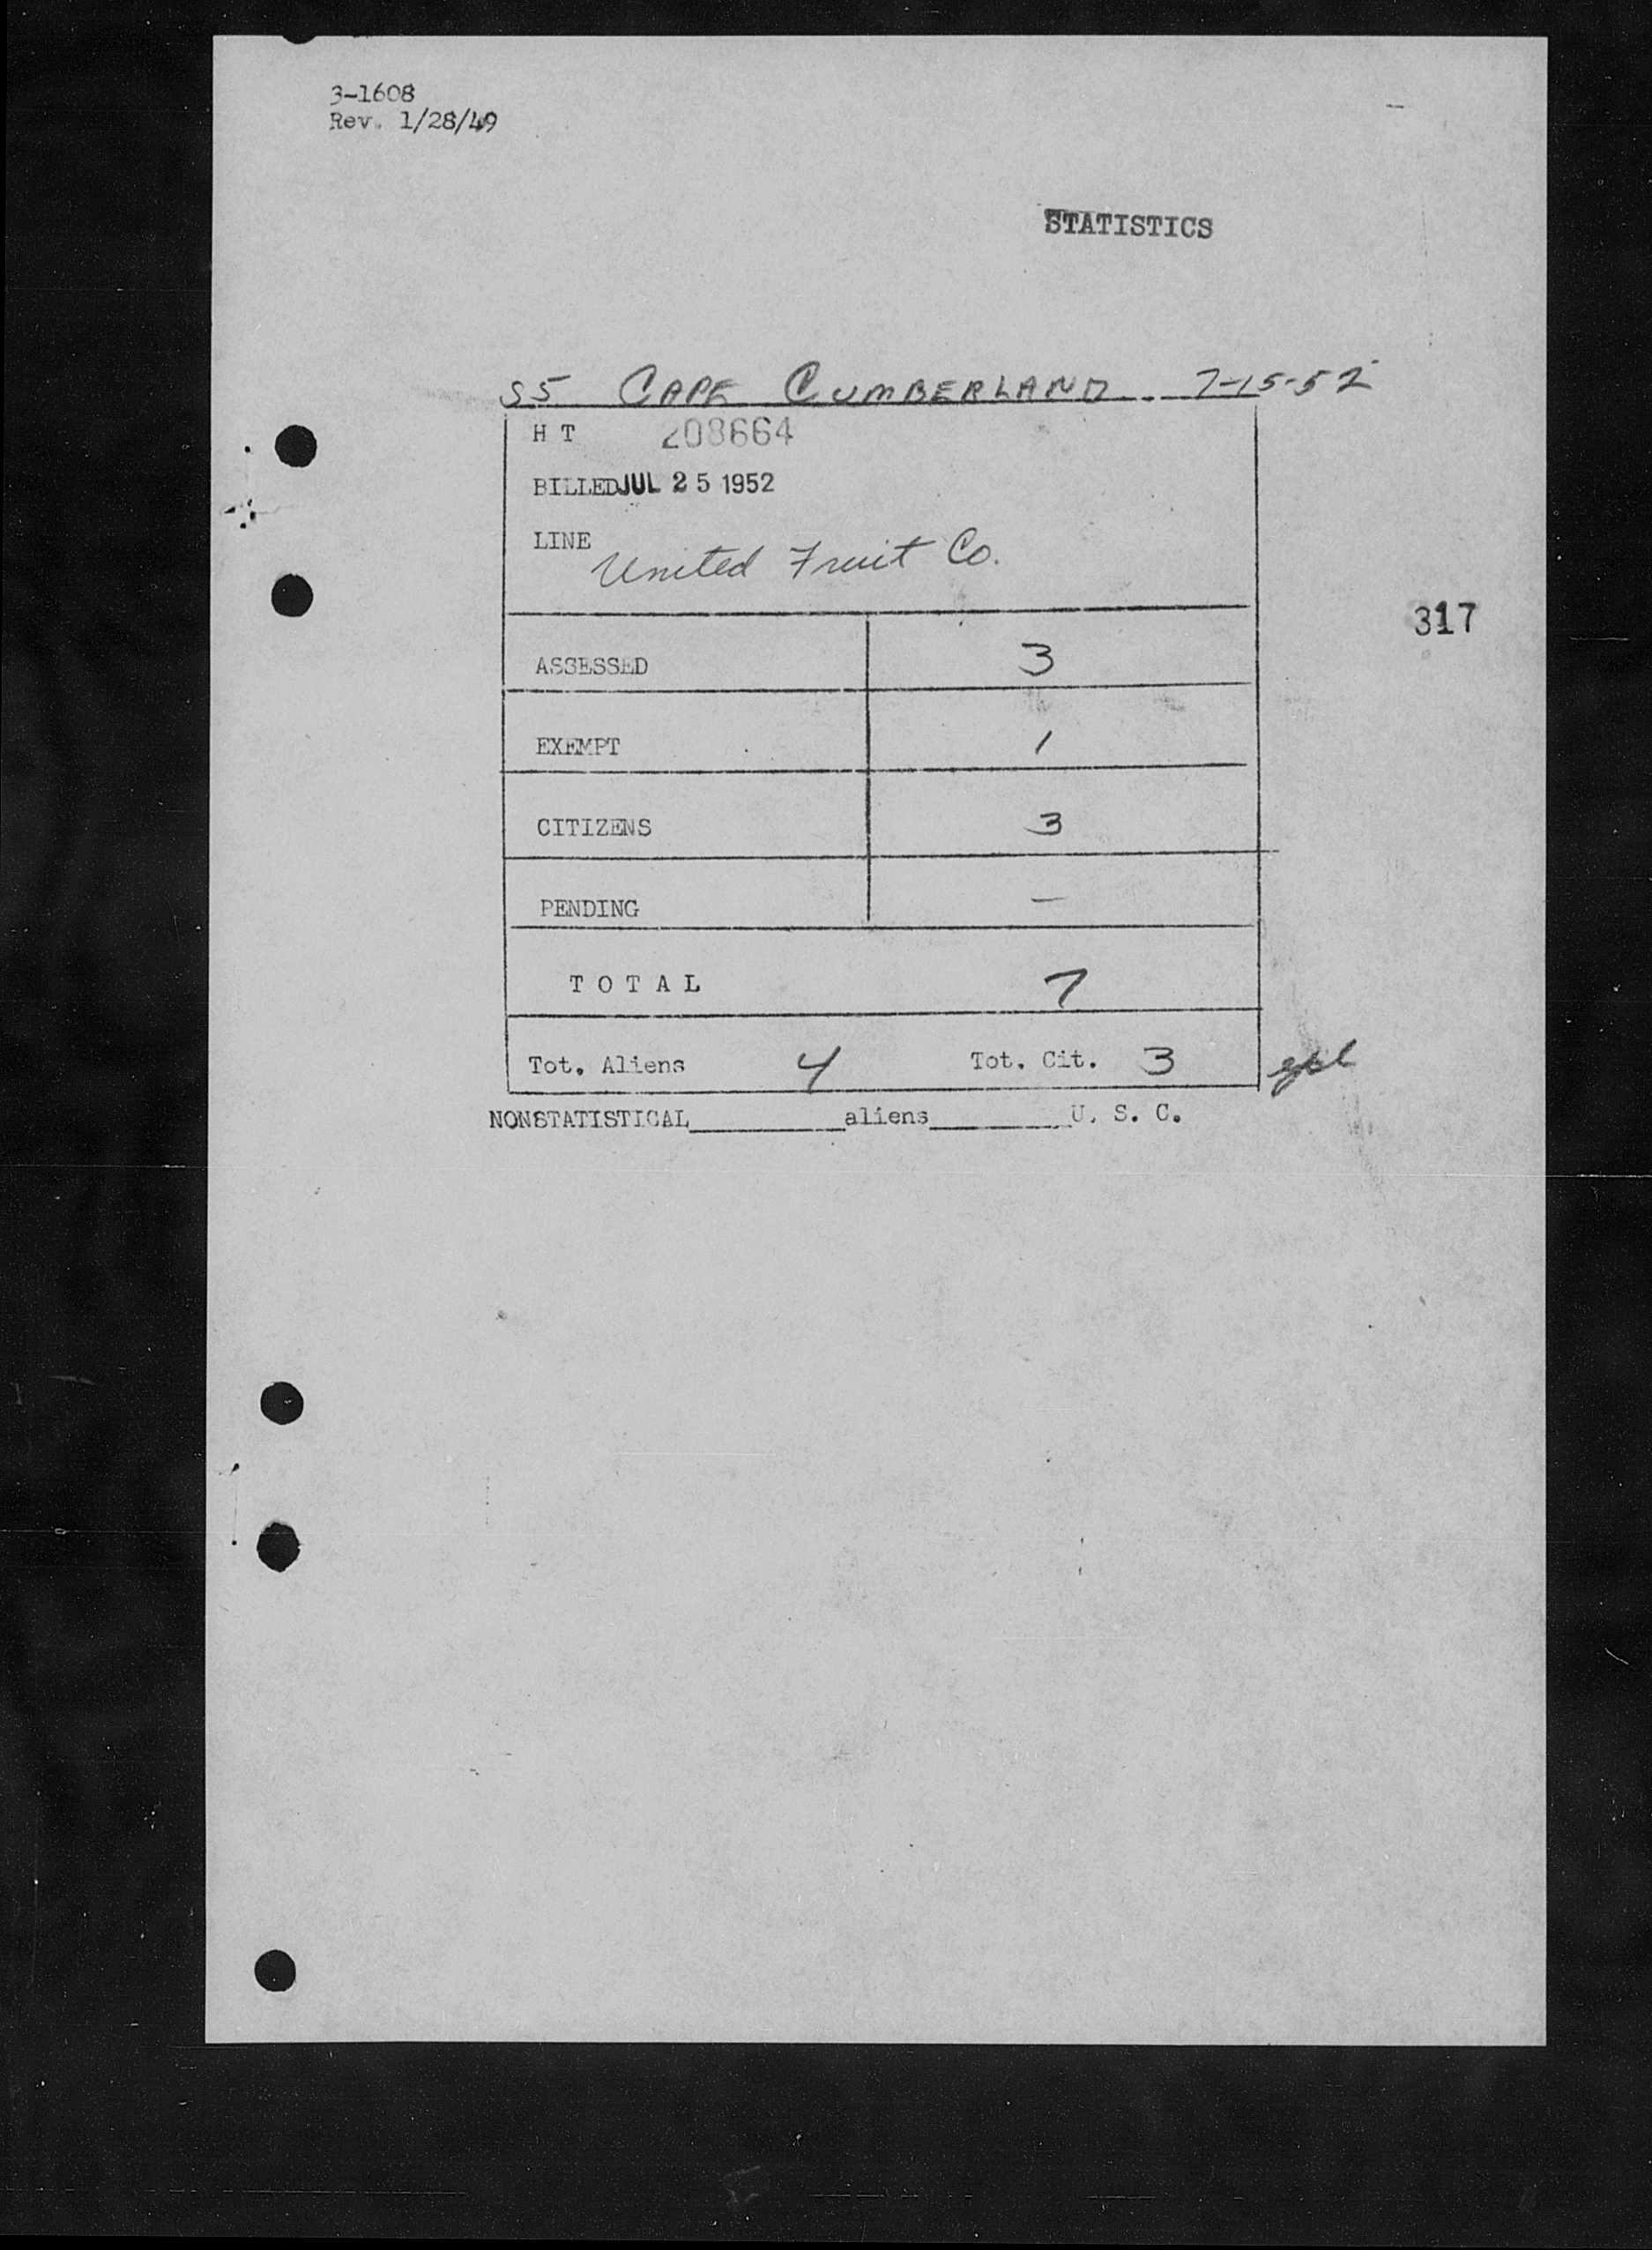 3-1608
Rev. 1/28/49
STATISTICS
SS CAPE CUMBERLAND 7-15-52
H T 208664
BILLED JUL 25 1952
LINE United Fruit Co.
317
ASSESSED 3
EXEMPT 1
CITIZENS 3
PENDING —
TOTAL 7
Tot. Aliens 4 Tot. Cit. 3
NONSTATISTICAL__________aliens_________U. S. C.